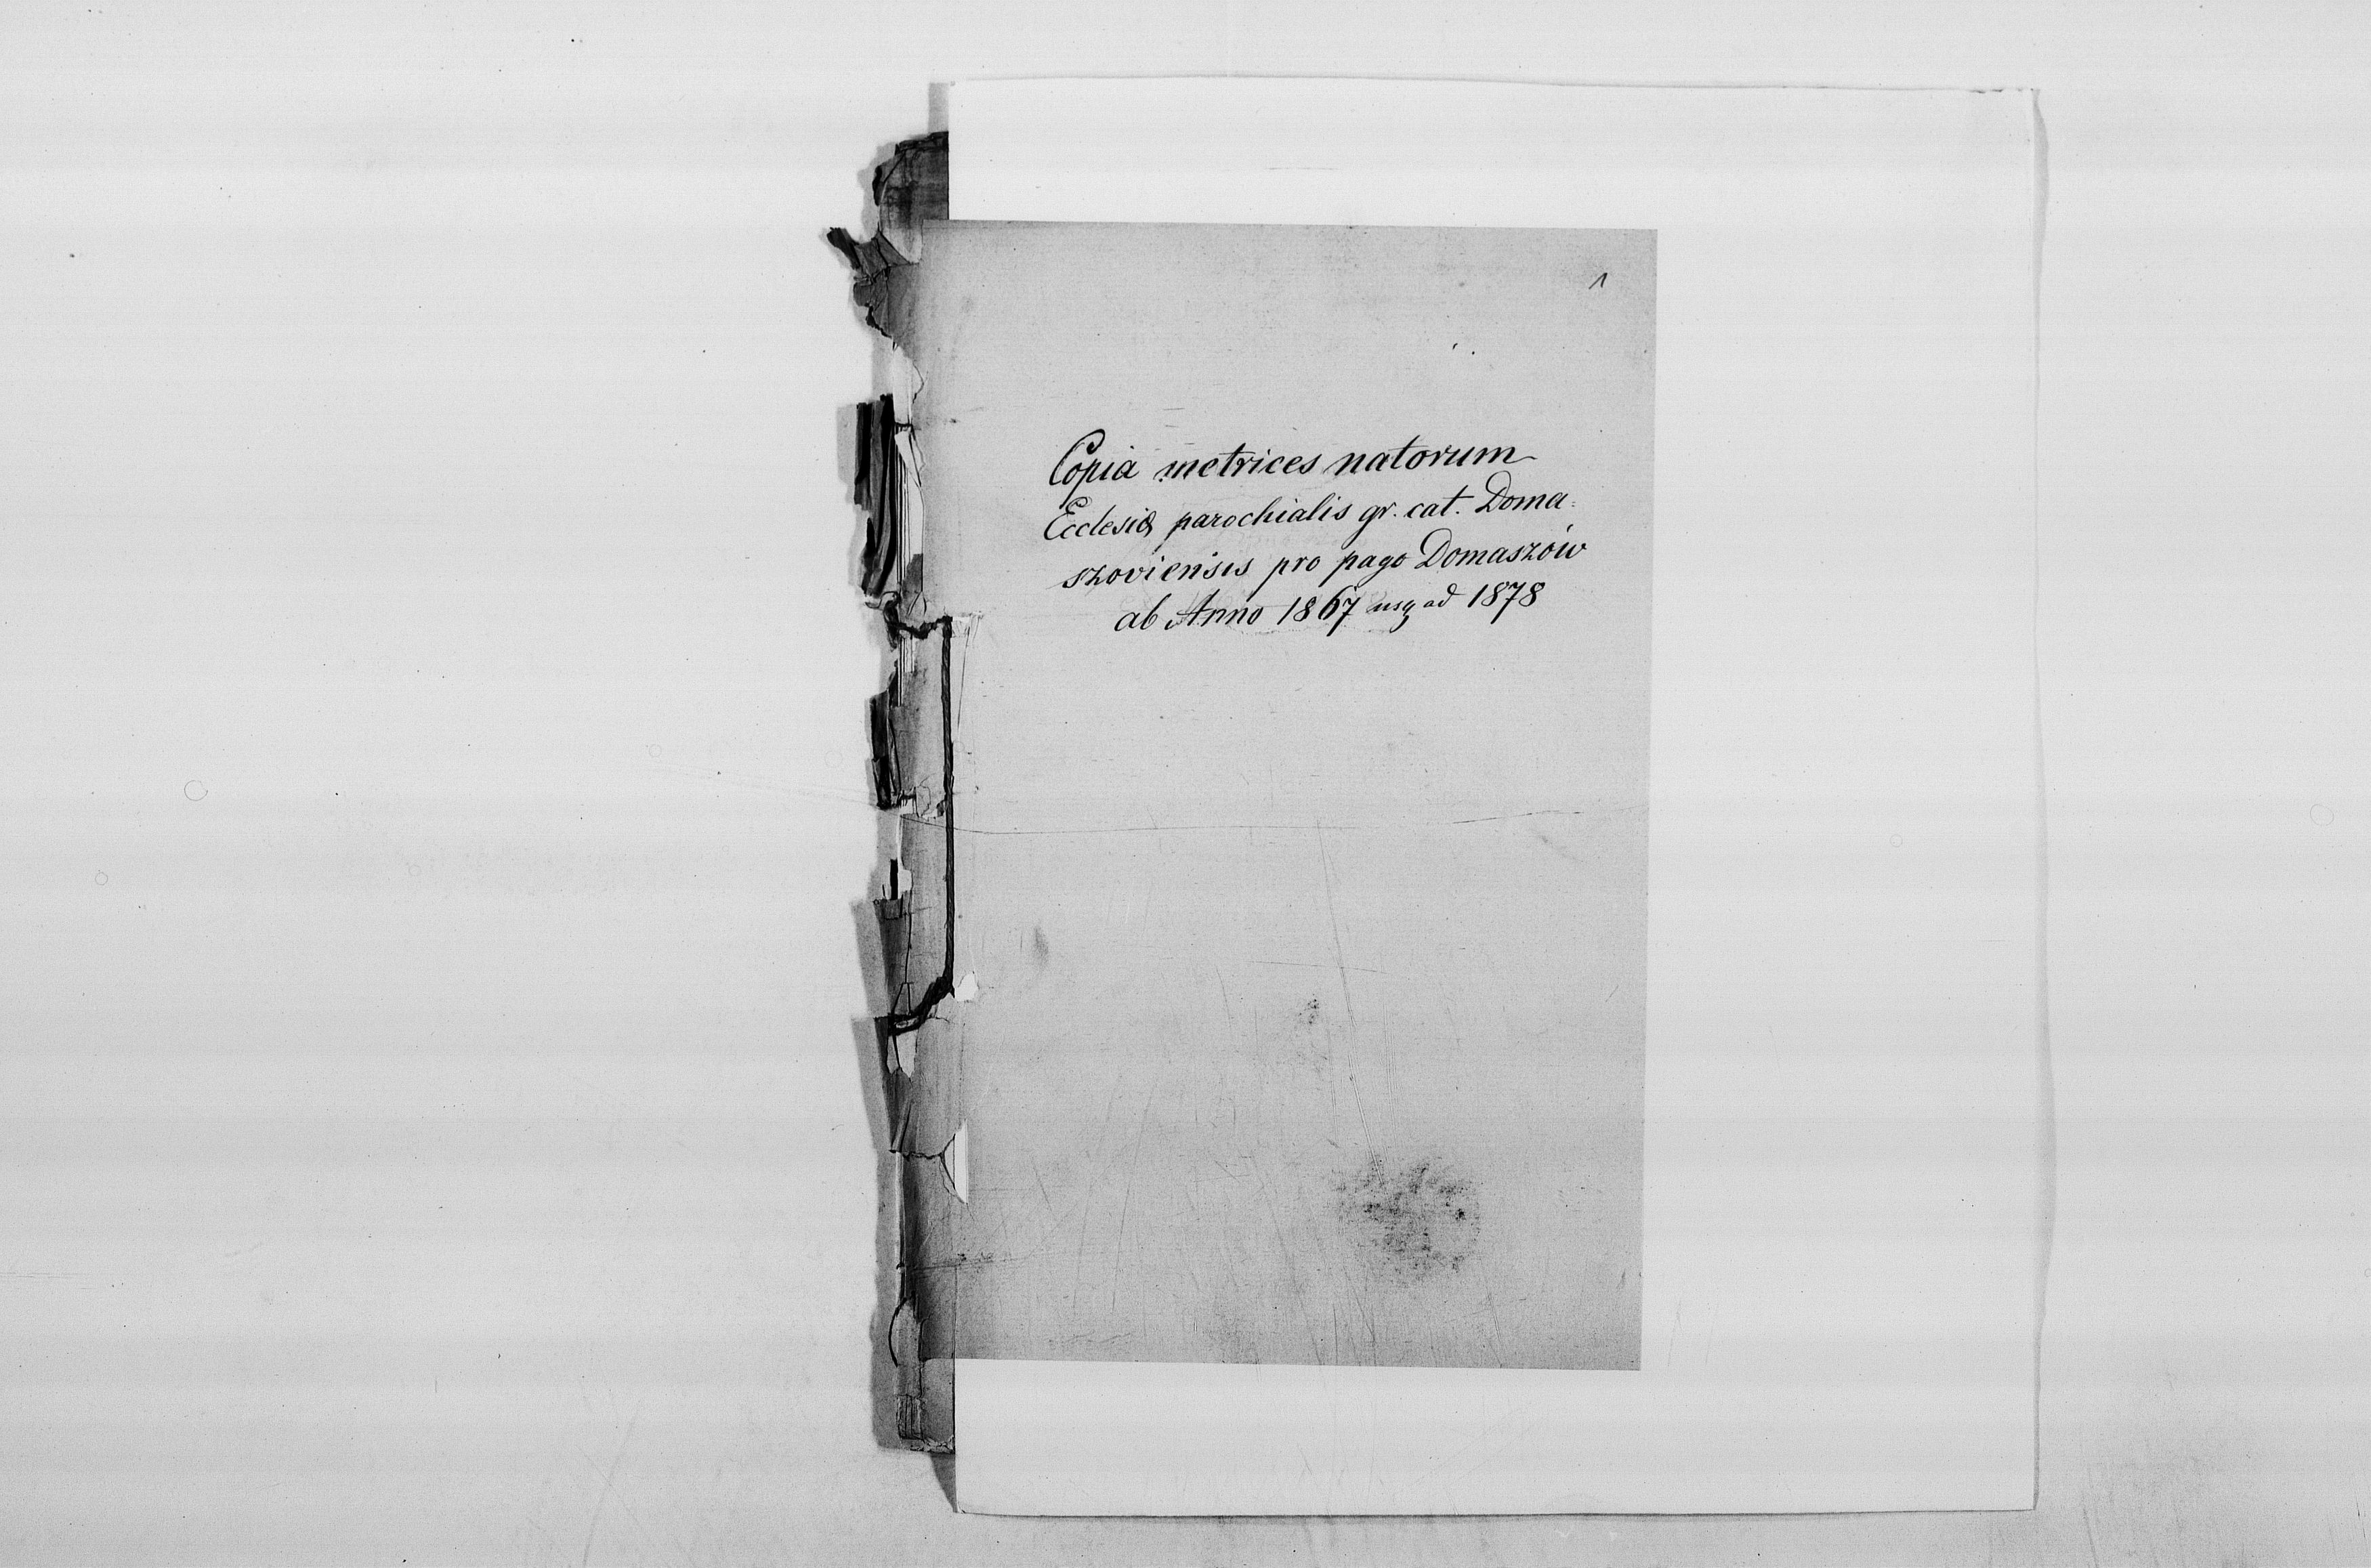 1
Copia metrices natorum
Ecclesiæ parochialis gr. cat. Doma=
szoviensis pro pago Domaszów
ab Anno 1867 usq ad 1878